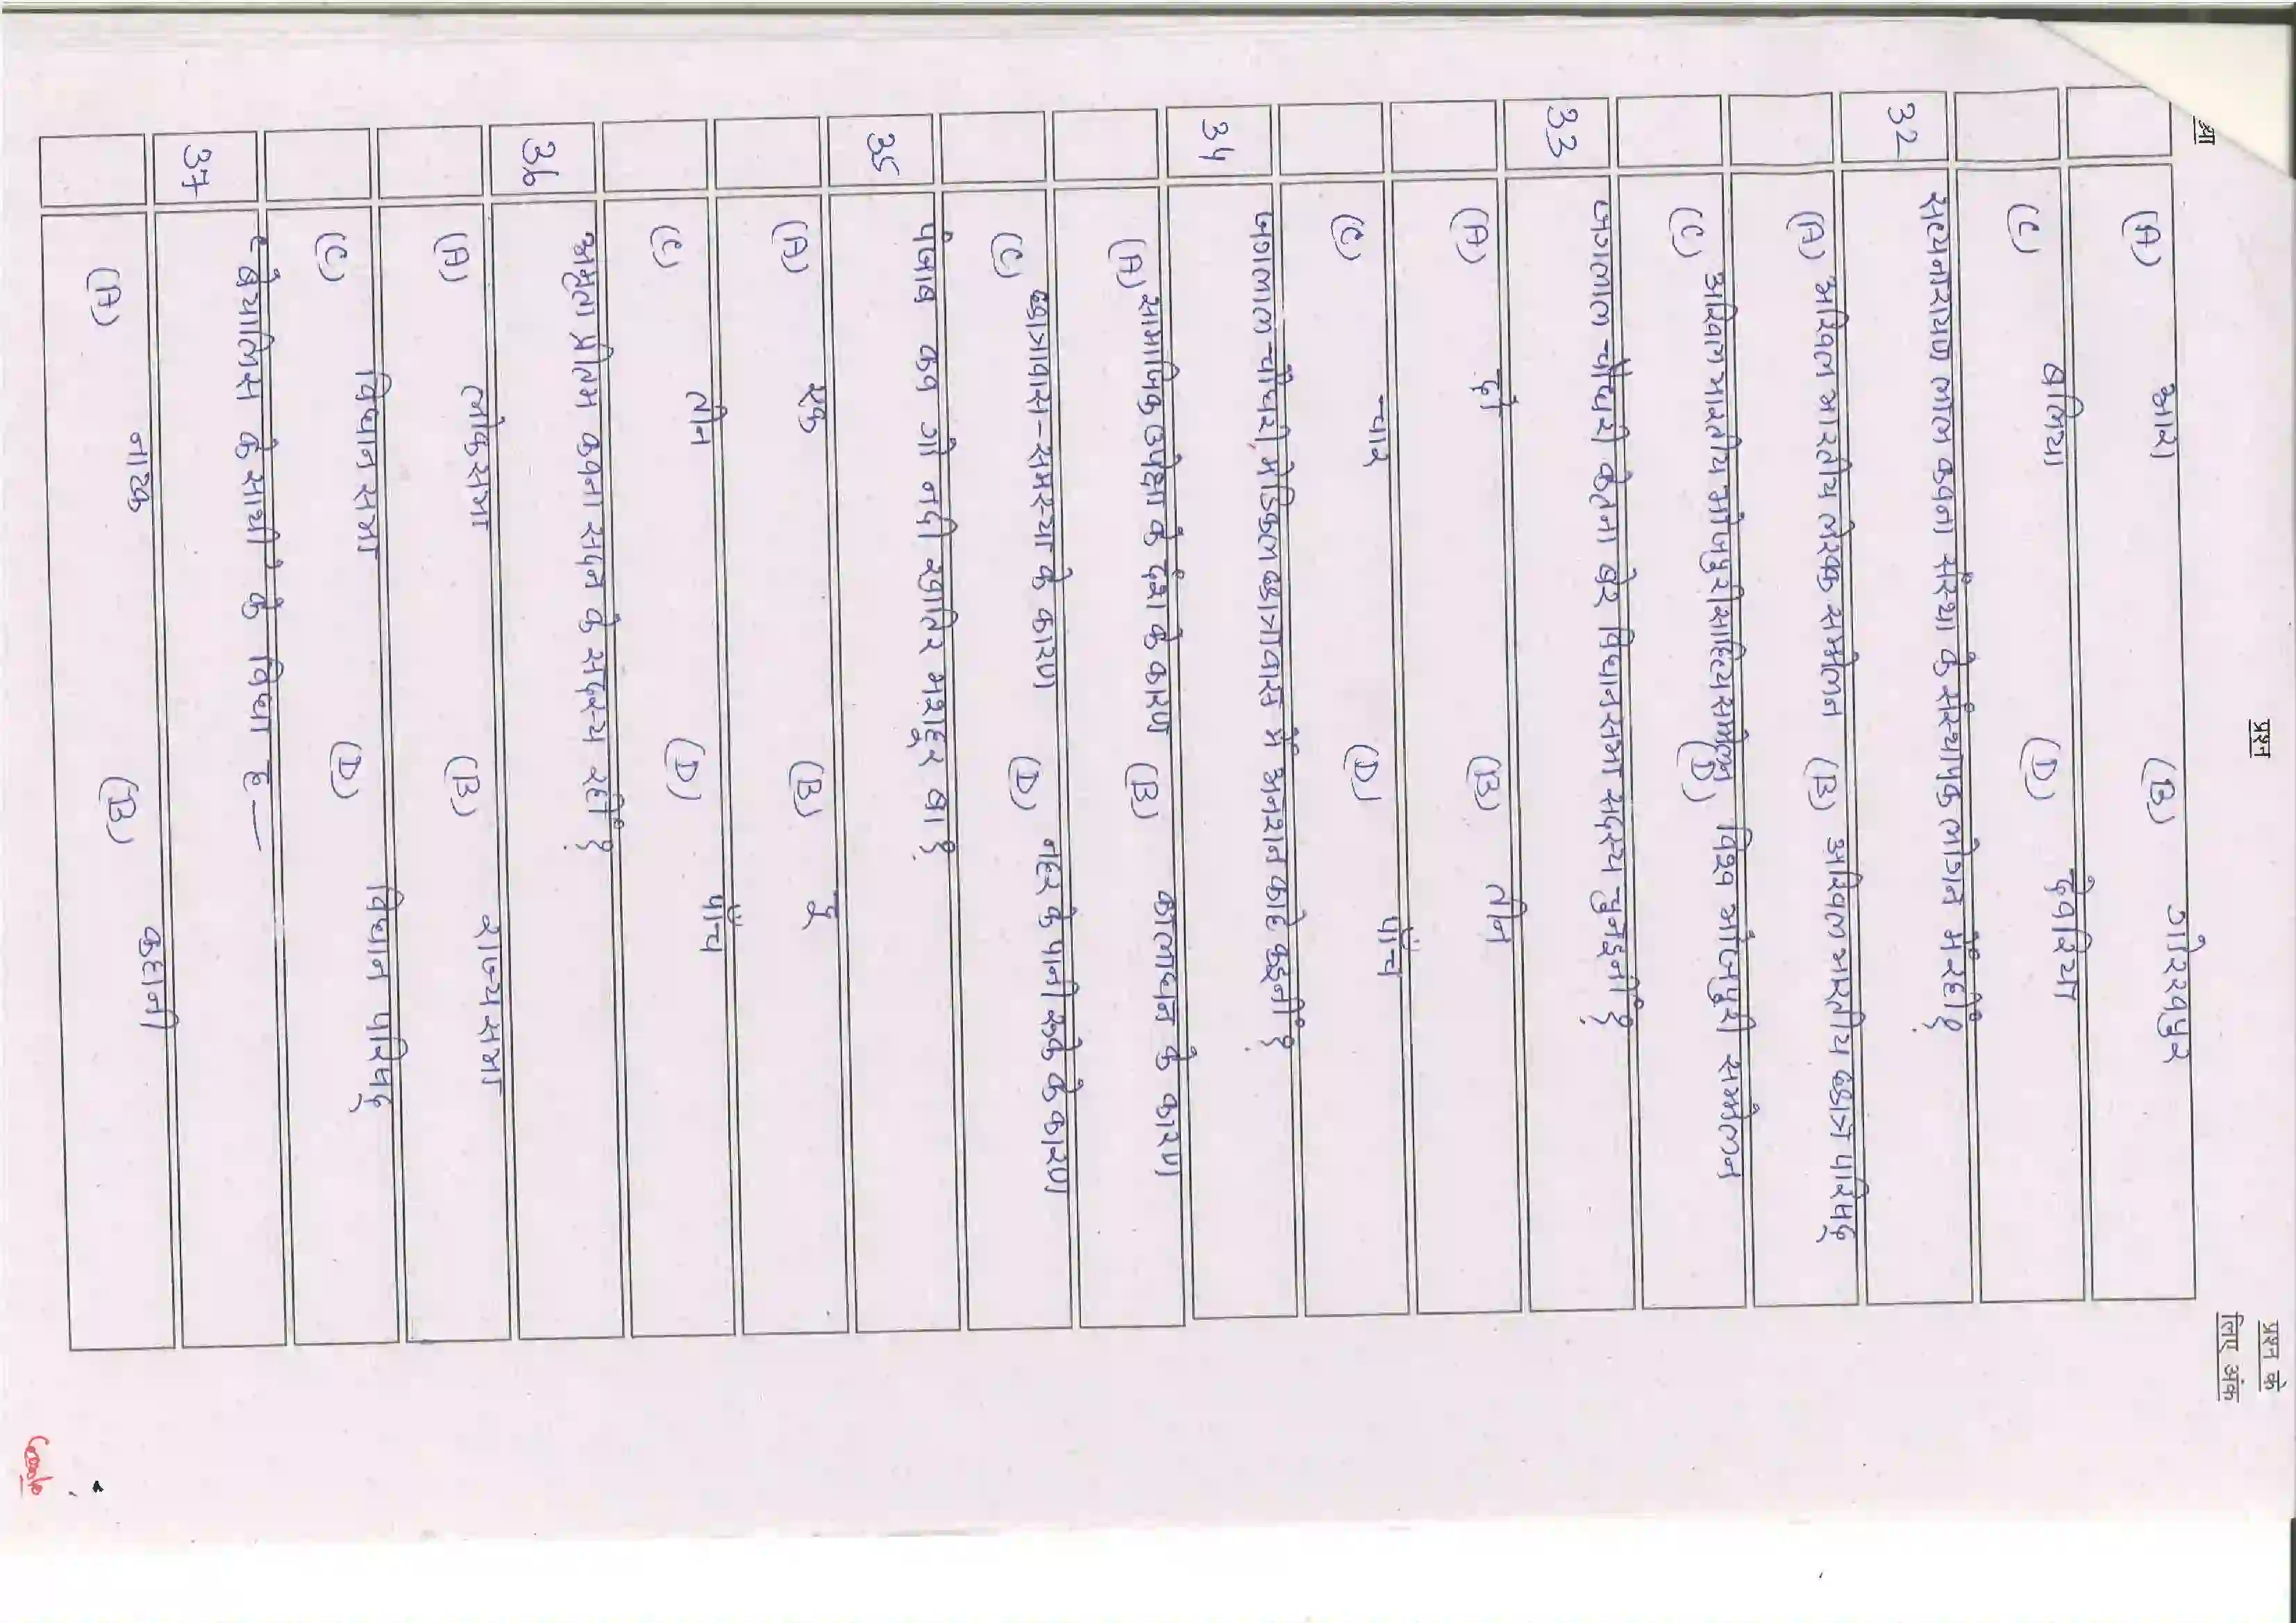 प्रश्न
प्रश्न के
लिए अंक
(A) आरा (B) गोरखपुर
(C) बलिया (D) देवरिया
32 सत्यनारायण लाल कवना संस्था के संस्थापक लोगन में रहीं?
(A) अखिल भारतीय लेखक सम्मेलन (B) अखिल भारतीय छात्र परिषद्
(C) अखिल भारतीय भोजपुरी साहित्य सम्मेलन (D) विश्व भोजपुरी सम्मेलन
33 जगलाल चौधरी केतना बेर विधानसभा सदस्य चुनइनीं?
(A) दो (B) तीन
(C) चार (D) पाँच
34 जगलाल चौधरी मेडिकल छात्रावास में अनशन काहे कइनीं?
(A) सामाजिक उपेक्षा के दंश के कारण (B) कालाधन के कारण
(C) छात्रावास-समस्या के कारण (D) नहर के पानी रुके के कारण
35 पंजाब कव गो नदी खातिर मशहूर बा?
(A) एक (B) दू
(C) तीन (D) पाँच
36 अमृता प्रीतम कवना सदन के सदस्य रहीं?
(A) लोकसभा (B) राज्य सभा
(C) विधान सभा (D) विधान परिषद्
37 ए बेयालिस के साथी के विधा ह—
(A) नाटक (B) कहानी